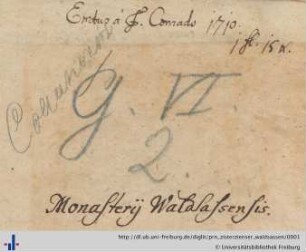 Embus à F. Conrado 1710.
1 fl. 15 x.
G. VI.
2.
Monasterij Waldsassensis.
http://dl.ub.uni-freiburg.de/diglit/prn_zisterzienser_waldsassen/0001
© Universitätsbibliothek Freiburg